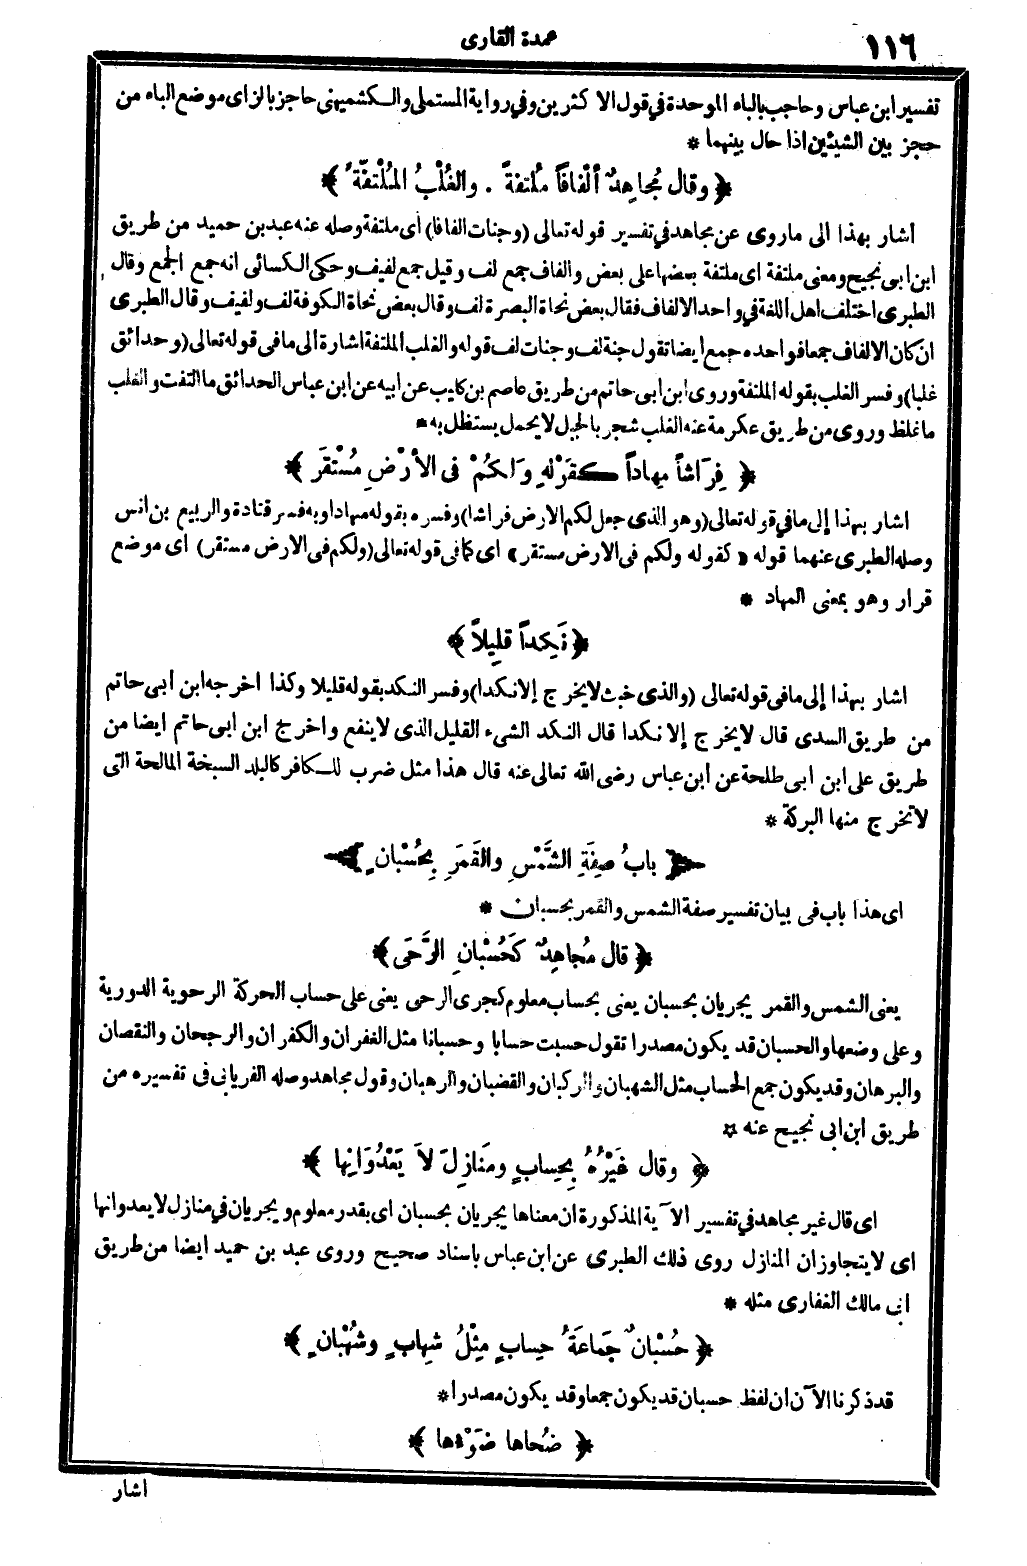 ١١٦
عمدة القارى
تفسير ابن عباس وحاجب بالباء الموحدة في قول الاكثرين وفي رواية المستملى والكشميهنى حاجز بالزاى موضع الباء من
حجز بين الشيئين اذا حال بينهما *
﴿ وقال مُجاهِدٌ ألْفافاً مُلتفةً . والغُلْبُ المُلْتَفَّةُ ﴾
أشار بهذا الى ماروى عن مجاهد في تفسير قوله تعالى (وجنات الفافا) أى ملتفة وصله عنه عبد بن حميد من طريق
ابن ابى نجيح ومعنى ملتفة اى ملتفة بعضها على بعض والفاف جمع لف وقيل جمع لفيف وحكى الكسائى انه جمع الجمع وقال
الطبرى اختلف اهل اللغة في واحد الالفاف فقال بعض نحاة البصرة لف وقال بعض نحاة الكوفة لف ولفيف وقال الطبرى
ان كان الالفاف جمعا فواحده جمع ايضا تقول جنة لف وجنات لف قوله والغلب الملتفة اشارة الى ما فى قوله تعالى (وحدائق
غلبا) وفسر الغلب بقوله الملتفة وروى ابن ابى حاتم من طريق عاصم بن كليب عن ابيه عن ابن عباس الحدائق ما التفت والغلب
ماغلظ وروى من طريق عكرمة عنه الغلب شجر بالجبل لايحمل يستظل به *
﴿ فِرَاشاً مِهاداً كقَوْلِهِ وَلَكُمْ فى الأرْضِ مُسْتَقَر ﴾
اشار بهذا إلى ما في قوله تعالى (وهو الذى جعل لكم الارض فراشا) وفسره بقوله مهادا وبه فسر قتادة والربيع بن انس
وصله الطبرى عنهما قوله «كقوله ولكم فى الارض مستقر» اى كما فى قوله تعالى (ولكم فى الارض مستقر) اى موضع
قرار وهو بمعنى المهاد *
﴿ نَكِداً قَلِيلاً ﴾
اشار بهذا إلى ما فى قوله تعالى (والذى خبث لايخرج إلا نكدا) وفسر النكد بقوله قليلا وكذا اخرجه ابن ابى حاتم
من طريق السدى قال لايخرج إلا نكدا قال النكد الشىء القليل الذى لاينفع واخرج ابن ابى حاتم ايضا من
طريق على ابن ابى طلحة عن ابن عباس رضى الله تعالى عنه قال هذا مثل ضرب للكافر كالبلد السبخة المالحة التى
لا تخرج منها البركة *
﴿ بابُ صِفَةِ الشَّمْسِ والقَمَرِ بِحُسْبانٍ ﴾
اى هذا باب فى بيان تفسير صفة الشمس والقمر بحسبان *
﴿ قال مُجاهِدٌ كَحُسْبانِ الرَّحَى ﴾
يعنى الشمس والقمر يجريان بحسبان يعنى بحساب معلوم كجرى الرحى يعنى على حساب الحركة الرحوية الدورية
وعلى وضعها والحسبان قد يكون مصدرا تقول حسبت حسابا وحسبانا مثل الغفران والكفران والرجحان والنقصان
والبرهان وقد يكون جمع الحساب مثل الشهبان والركبان والقضبان والرهبان وقول مجاهد وصله الفريابى فى تفسيره من
طريق ابن ابى نجيح عنه *
﴿ وقال غَيْرُهُ بِحِسابٍ ومَنازِلَ لاَ يَعْدُوَانِها ﴾
اى قال غير مجاهد في تفسير الآية المذكورة ان معناها يجريان بحسبان اى بقدر معلوم ويجريان في منازل لا يعدوانها
اى لايتجاوزان المنازل روى ذلك الطبرى عن ابن عباس باسناد صحيح وروى عبد بن حميد ايضا من طريق
ابى مالك الغفارى مثله *
﴿ حُسْبانٌ جَماعَةُ حِسابٍ مِثْلُ شِهابٍ وشُهْبانٍ ﴾
قد ذكرنا الآن ان لفظ حسبان قد يكون جمعا وقد يكون مصدرا *
﴿ ضُحاها ضَوْءُها ﴾
اشار